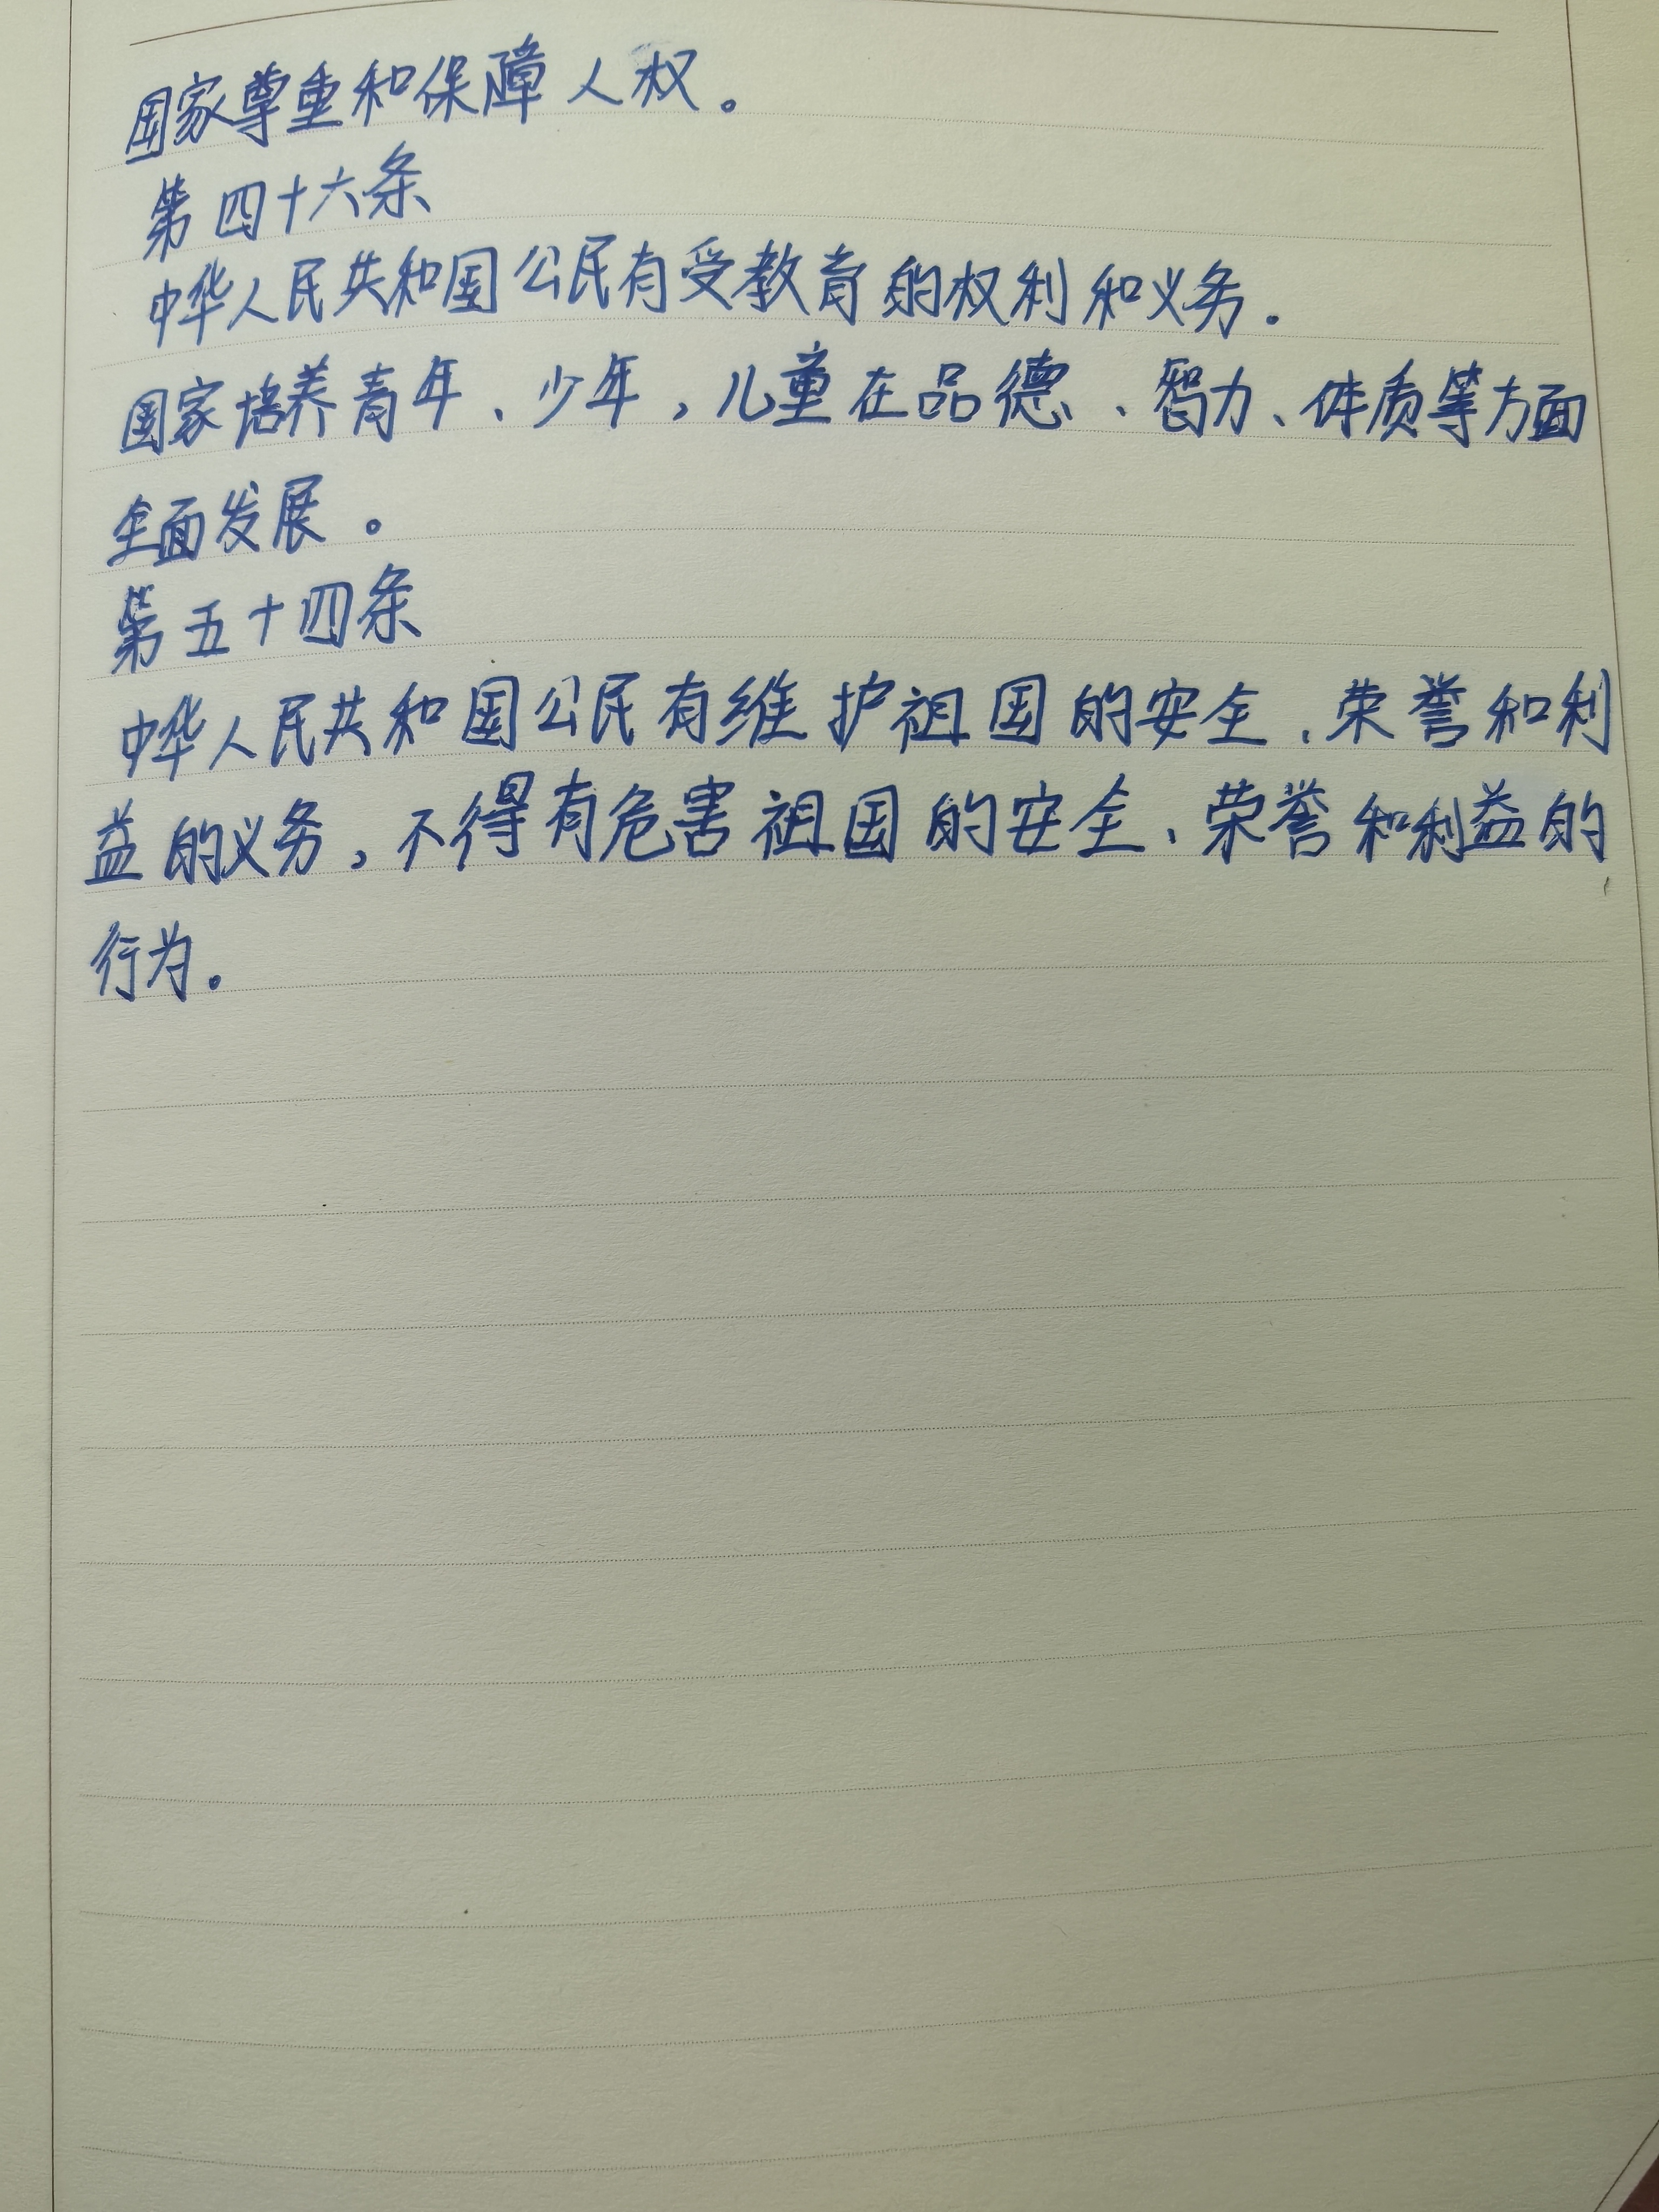 国家尊重和保障人权。
第四十六条
中华人民共和国公民有受教育的权利和义务。
国家培养青年、少年，儿童在品德、智力、体质等方面
全面发展。
第五十四条
中华人民共和国公民有维护祖国的安全、荣誉和利
益的义务，不得有危害祖国的安全、荣誉和利益的
行为。